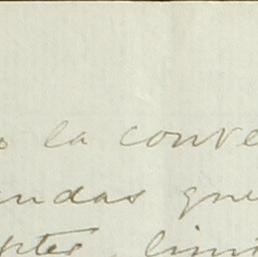 la conve
endas que
pter, limi